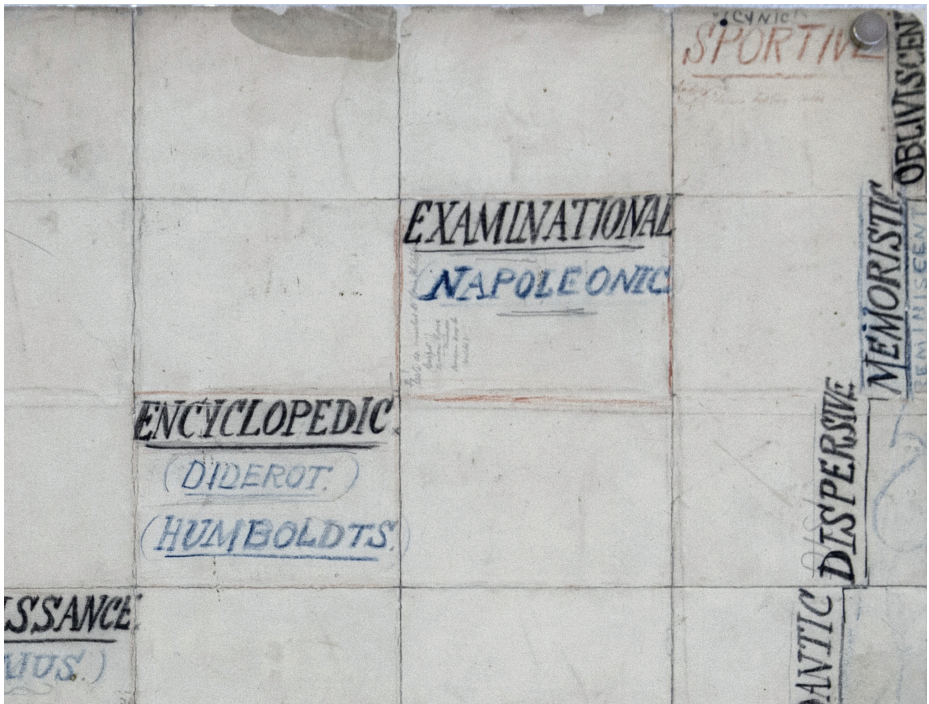 CYNIC
SPORTIVE
OBLIVISCEN
EXAMINATIONAL
(NAPOLEONIC
MEMORISTIC
REMINISCENT
ENCYCLOPEDIC.
(DIDEROT.)
(HUMBOLDTS.)
DISPERSIVE
ISSANCE
IUS.)
ANTIC